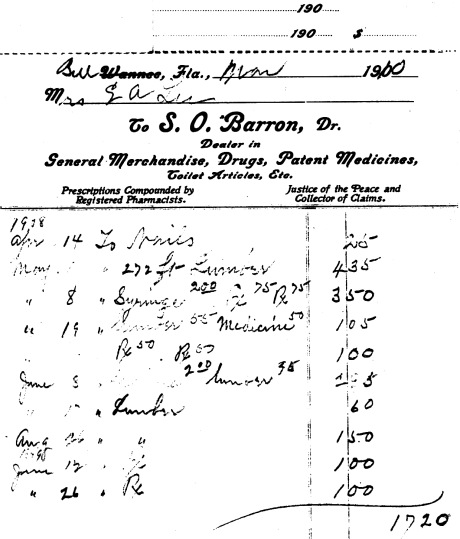 190
190 $
Bell Wannee, Fla., Mar 1900
Mrs E A Lee
To S. O. Barron, Dr.
Dealer in
General Merchandise, Drugs, Patent Medicines,
Toilet Articles, Etc.
Prescriptions Compounded by Registered Pharmacists.
Justice of the Peace and Collector of Claims.
Apr 14 To Nails 25
May " 272 ft Lumber 435
" 8 " Syringe 2.00 Rx 75 Rx 75 350
" 19 " Lumber 55 Medicine 50 105
Rx 50 Rx 50 100
June 2.00 Lumber 35
" Lumber 60
Aug 26 " " 150
June 12 " Rx 100
" 26 " Rx 100
1720